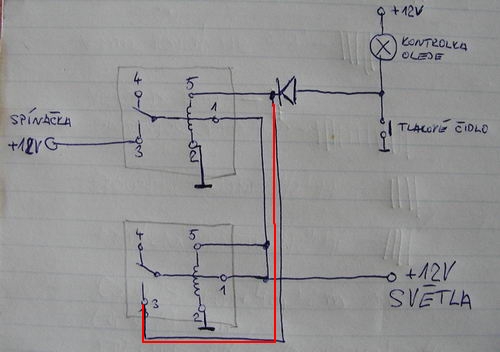 +12V
KONTROLKA
OLEJE
4
5
1
SPÍNAČKA
+12V
3
2
TLAKOVÉ ČIDLO
4
5
1
3
2
+12V
SVĚTLA